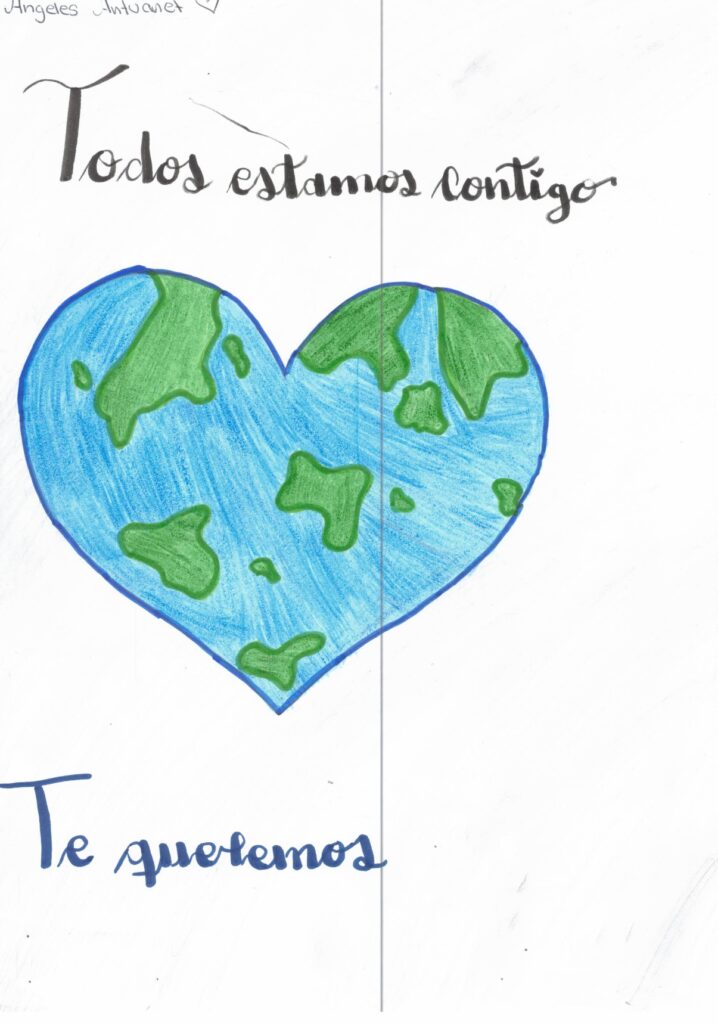 Angeles Antuanet
Todos estamos contigo
Te queremos